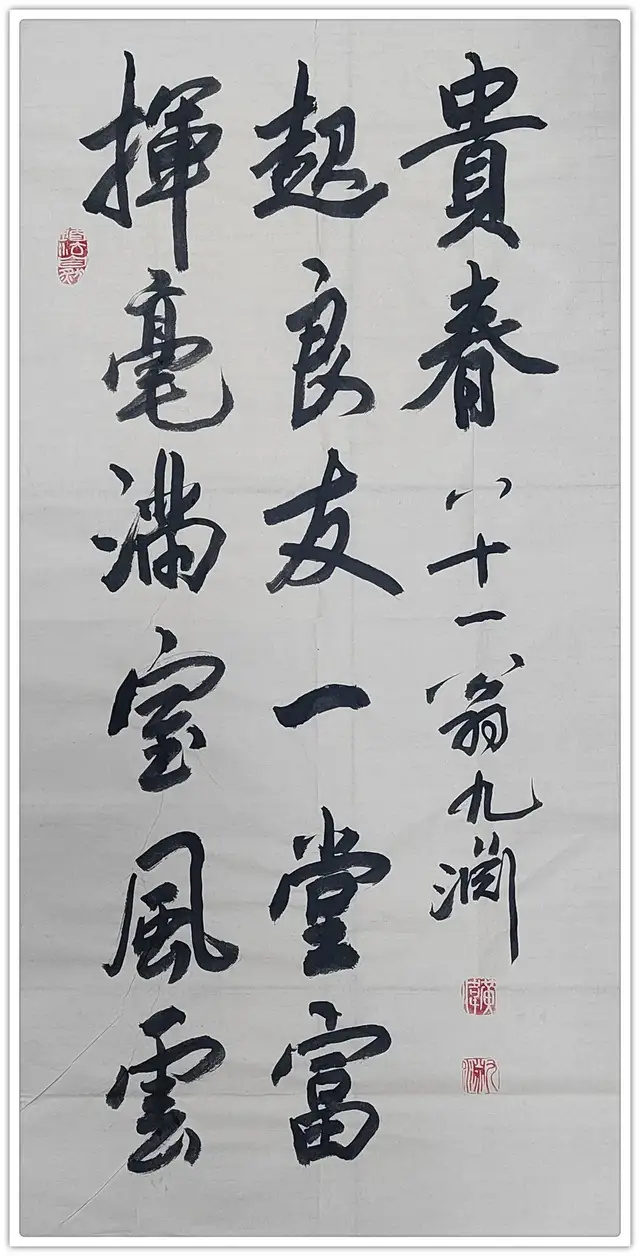 揮毫滿室風雲
起良友一堂富
貴春八十一翁九淵